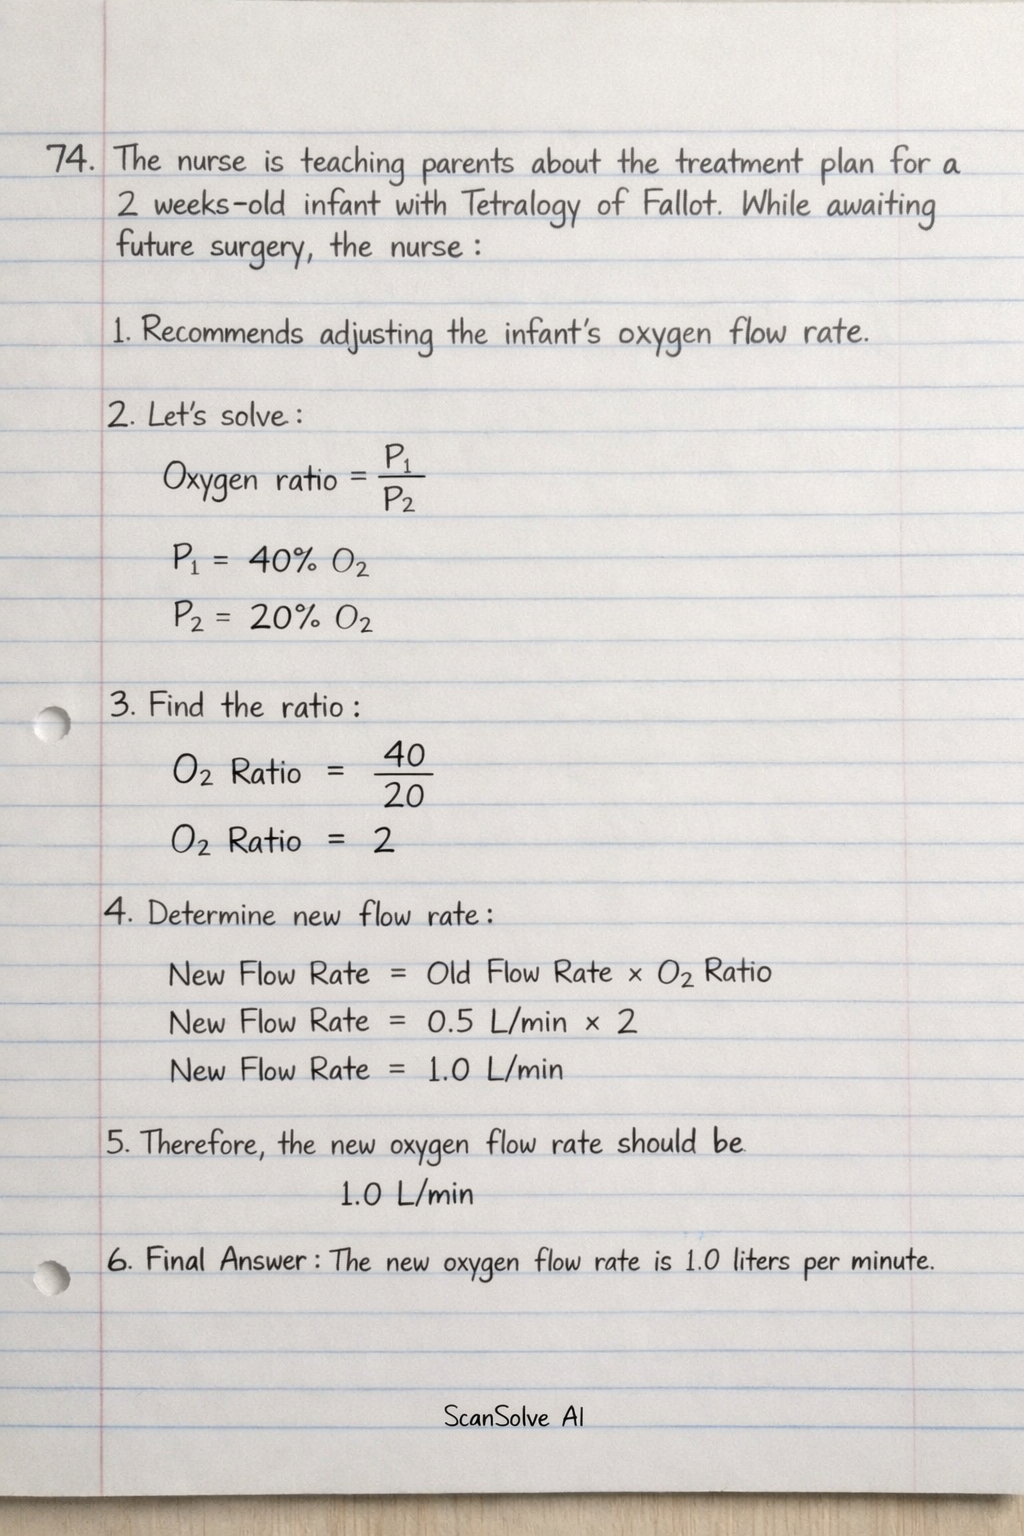 74. The nurse is teaching parents about the treatment plan for a
2 weeks-old infant with Tetralogy of Fallot. While awaiting
future surgery, the nurse :
1. Recommends adjusting the infant's oxygen flow rate.
2. Let's solve :
Oxygen ratio = P₁/P₂
P₁ = 40% O₂
P₂ = 20% O₂
3. Find the ratio :
O₂ Ratio = 40/20
O₂ Ratio = 2
4. Determine new flow rate :
New Flow Rate = Old Flow Rate × O₂ Ratio
New Flow Rate = 0.5 L/min × 2
New Flow Rate = 1.0 L/min
5. Therefore, the new oxygen flow rate should be
1.0 L/min
6. Final Answer : The new oxygen flow rate is 1.0 liters per minute.
ScanSolve AI